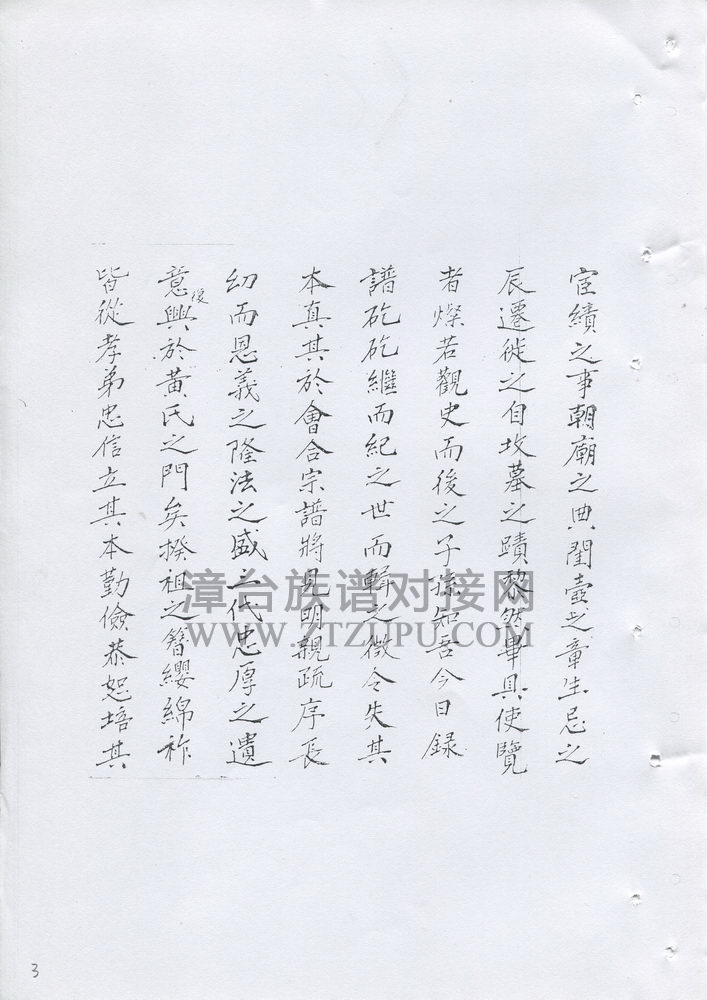 宦績之事朝廟之典閨壼之章生忌之
辰遷徙之自坟墓之蹟黎然畢具使覽
者燦若觀史而後之子孫知吾今日錄
譜矻矻繼而紀之世而輯之微令失其
本真其於會合宗譜將見明親疏序長
幼而恩義之隆法之盛三代忠厚之遺
意復興於黃氏之門矣揆祖之簪纓綿祚
皆從孝弟忠信立其本勤儉恭恕培其
漳台族谱对接网
WWW.ZTZUPU.COM
3